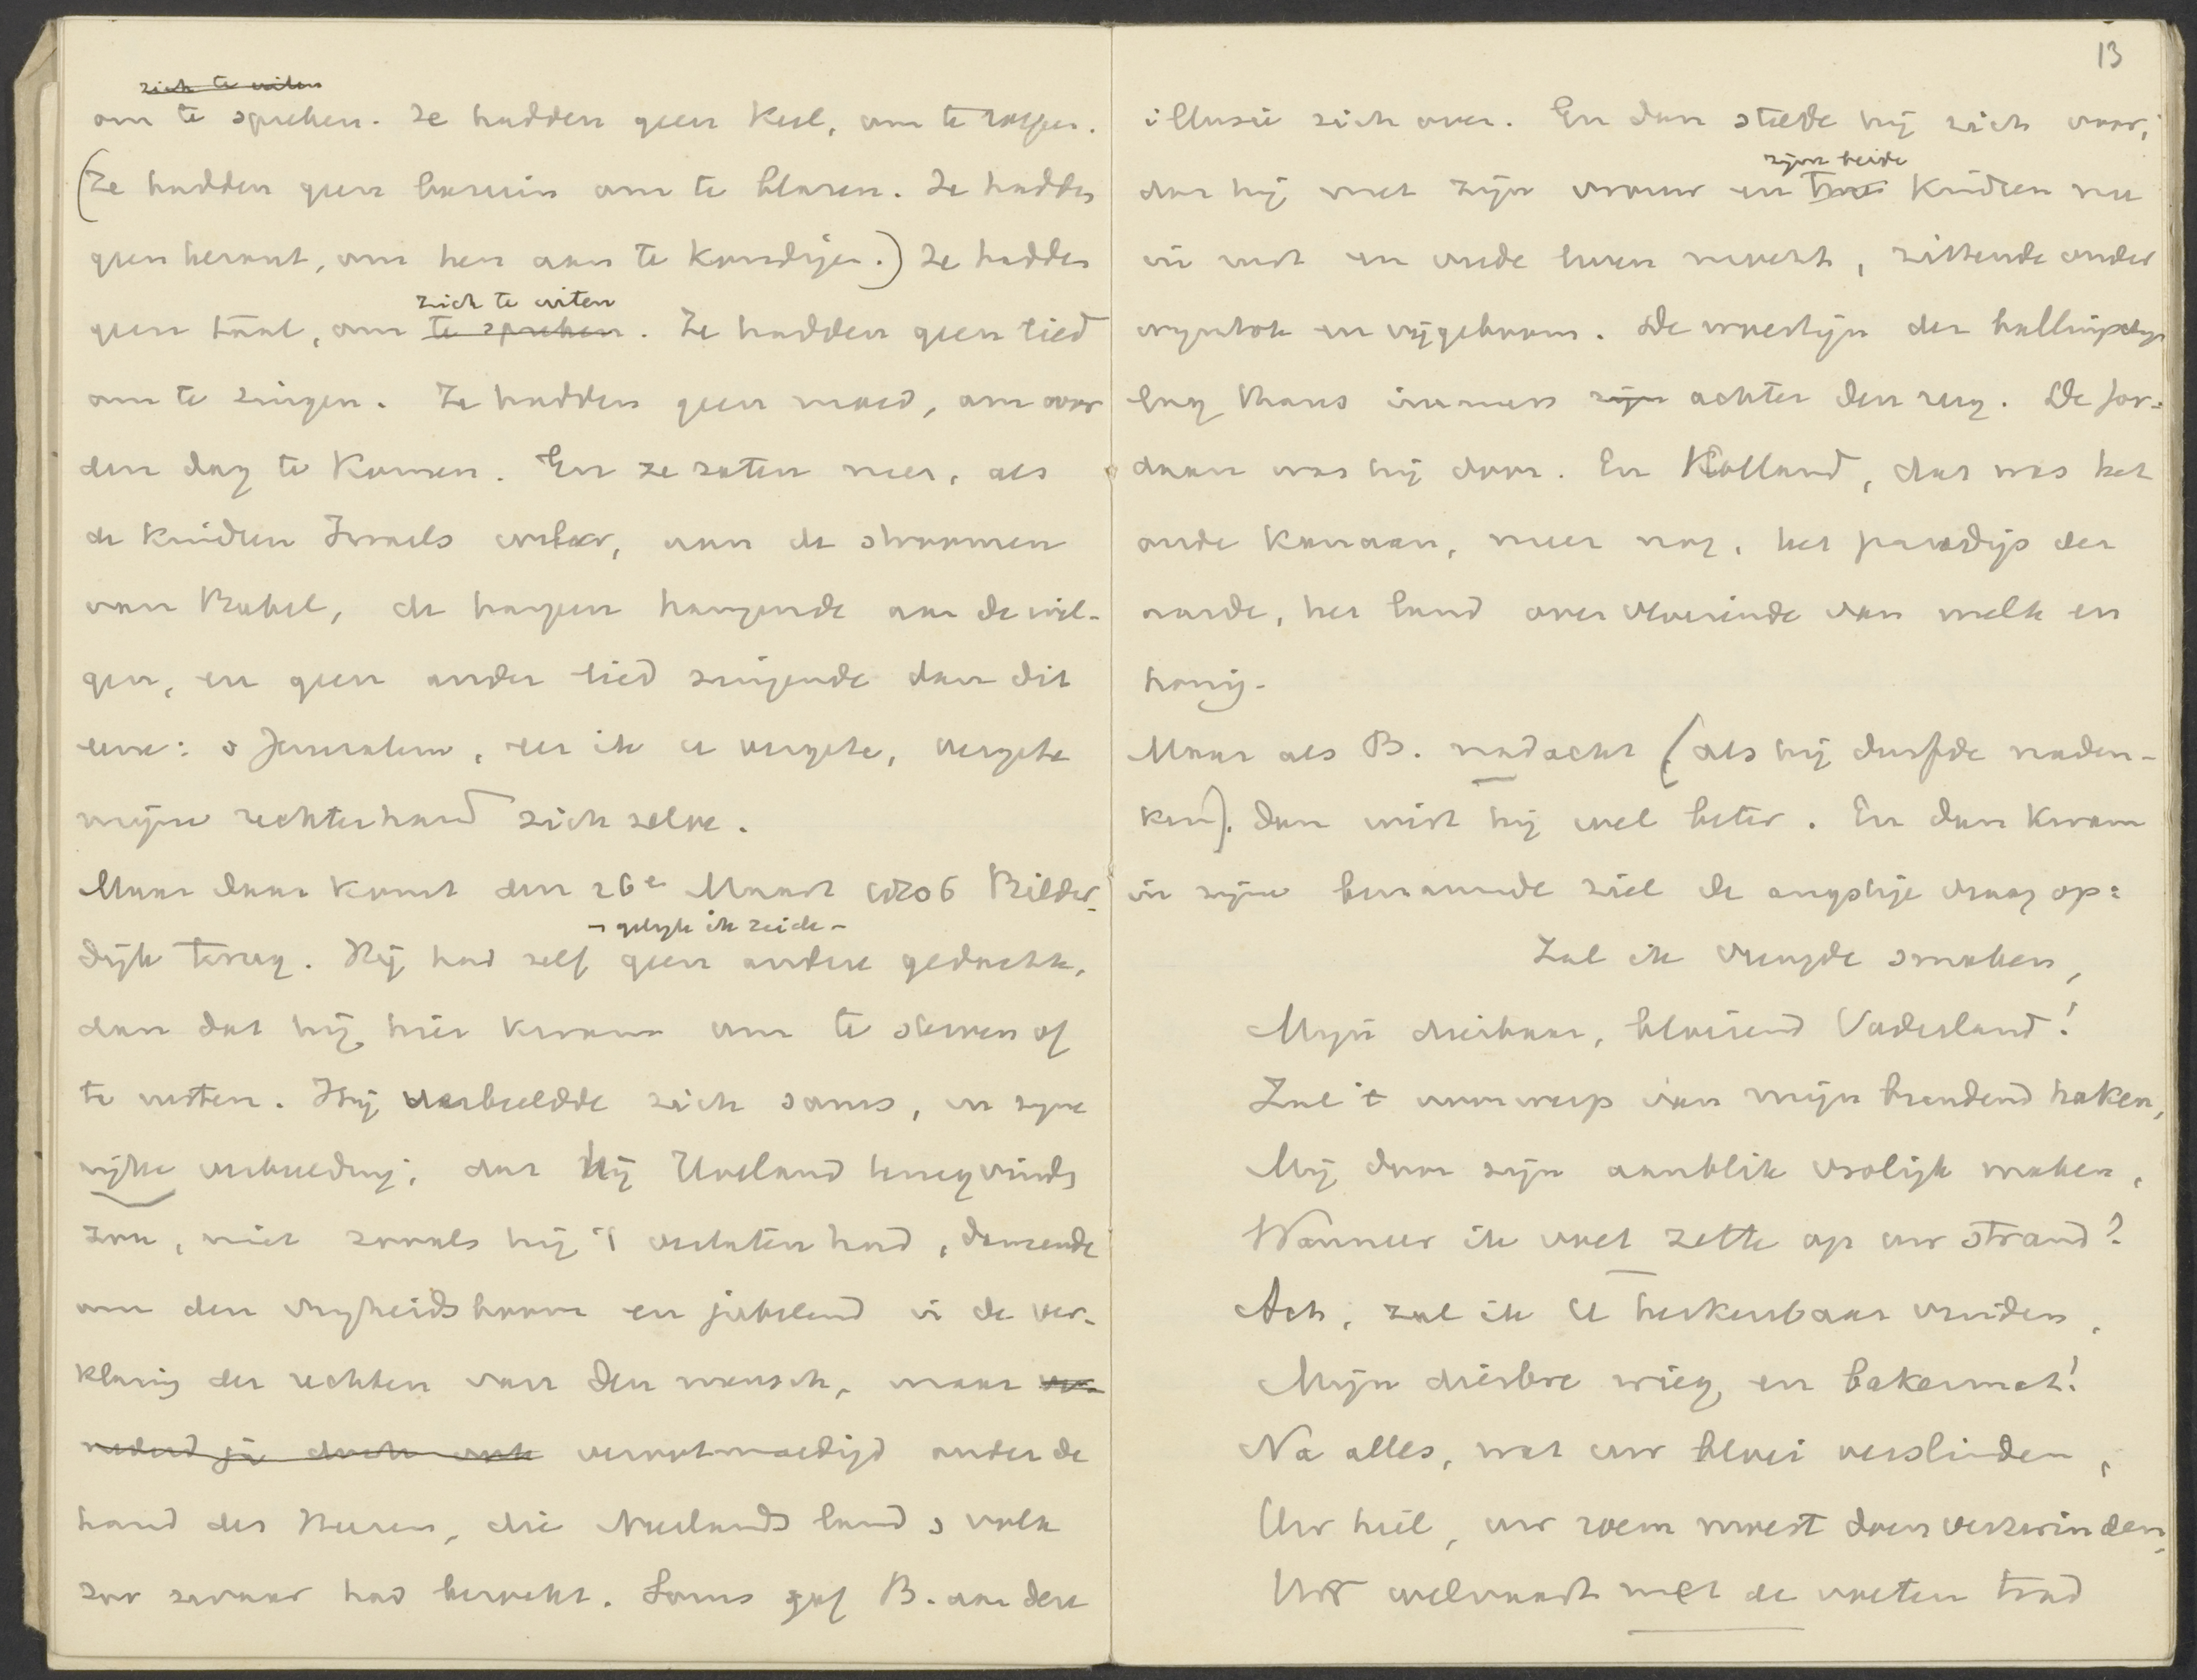 13
zich te uiten
om te spreken. Ze hadden geen keel, om te roepen.
(Ze hadden geen bazuin om te blazen. Ze hadden
geen heraut, om hen aan te kondigen.) Ze hadden
zich te uiten
geen taal, om te spreken. Ze hadden geen lied
om te zingen. Ze hadden geen moed, om voor
den dag te komen. En ze zaten neer, als
de kinderen Israels weleer, aan de stroomen
van Babel, de harpen hangende aan de wil-
gen, en geen ander lied zingende dan dit
eene: o Jeruzalem, zei ik u vergete, vergete
mijne rechterhand zich zelve.
Maar daar komt den 26e Maart 1806 Bilder-
– gelijk ik zeide –
dijk terug. Hij had zelf geen andere gedachte,
dan dat hij hier kwam om te sterven of
te rusten. Hij verbeeldde zich soms, in zijne
rijke verbeelding, dat hij Holland terugvinden
zou, niet zooals hij 't verlaten had, dansende
om den vrijheidsboom en jubelend in de ver-
klaring der rechten van den mensch, maar
verootmoedigd onder de
hand des Heeren, die Neerlands land & volk
zoo zwaar had bezocht. Soms gaf B. aan deze
illusie zich over. En dan stelde hij zich voor,
zijne beide
dat hij met zijn vrouw en twee kinderen nu
in rust en vrede leven mocht, zittende onder
wijnstok en vijgeboom. De woestijn der ballingschap
lag thans immers zijn achter den rug. De Jor-
daan was hij door. En Holland, dat was het
oude Kanaan, meer nog, het paradijs der
aarde, het land overvloeiende van melk en
honig.
Maar als B. nadacht (als hij durfde naden-
ken), dan wist hij wel beter. En dan kwam
in zijne benauwde ziel de angstige vraag op:
Zal ik vreugde smaken,
Mijn dierbaar, bloeiend Vaderland!
Zal 't voorwerp van mijn brandend haken,
Mij door zijn aanblik vrolijk maken,
Wanneer ik voet zette op uw strand?
Ach, zal ik U herkenbaar vinden,
Mijn dierbre wieg en bakermat!
Na alles, wat uw bloei verslinden,
Uw heil, uw roem moest doen verzwinden,
Uw welvaart met de voeten trad